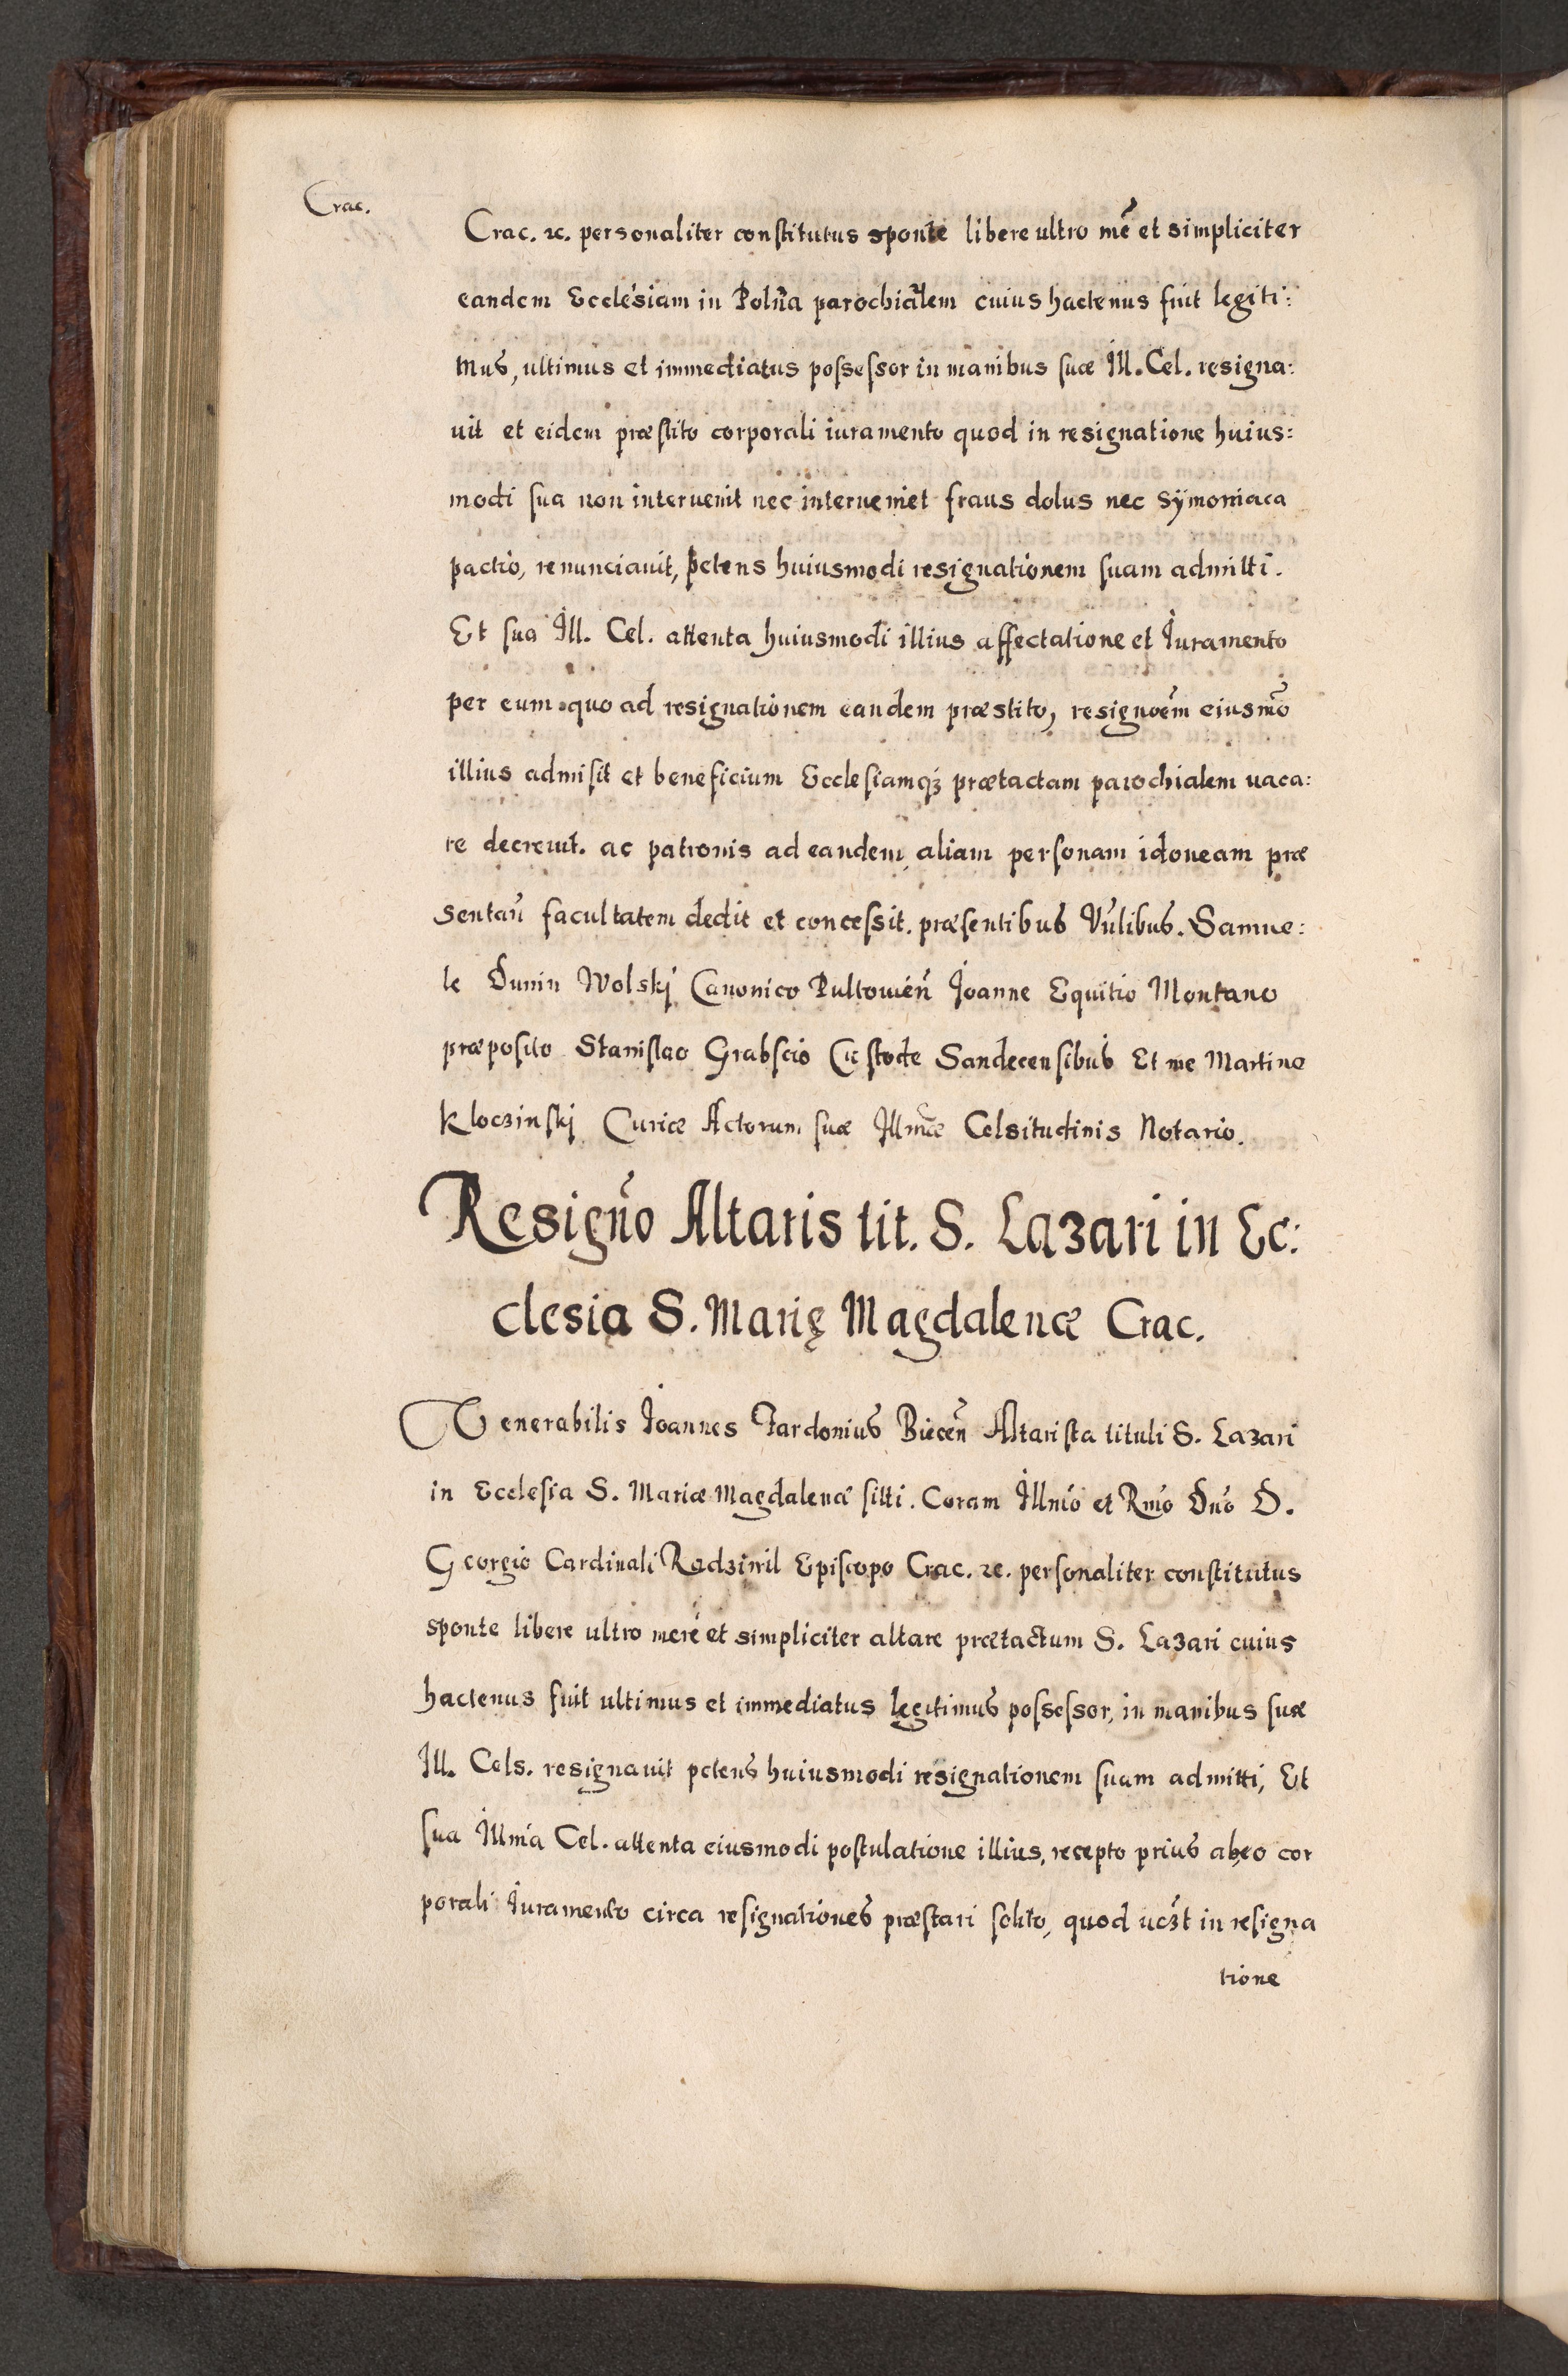 Crac.
Crac. &c. personaliter constitutus sponte libere ultro mē et simpliciter
eandem Ecclesiam in Polna parochialem cuius hactenus fuit legiti:
mus, ultimus et immediatus possessor in manibus suæ Ill. Cel. resigna:
uit et eidem præstito corporali iuramento quod in resignatione huius:
modi sua non interuenit nec interueniet fraus dolus nec symoniaca
pactio, renunciauit, petens huiusmodi resignationem suam admitti.
Et sua Ill. Cel. attenta huiusmodi illius affectatione et Iuramento
per eum quo ad resignationem eandem præstito, resignoēm eiusmō
illius admisit et beneficium Ecclesiamq3 prætactam parochialem uaca:
re decreuit. ac patronis ad eandem aliam personam idoneam præ
sentan̄ facultatem dedit et concessit. præsentibus Vn̄libus. Samue:
le Dunin Wolskj Canonico Pultouien̄ Joanne Equitio Montano
præposito Stanislao Grabscio Custode Sandecensibus Et me Martino
Kloczinskj Curiæ Actorum suæ Illmæ Celsitudinis Notario.
Resigno Altaris tit. S. Lazari in Ec:
clesia S. Marię Magdalenæ Crac.
Venerabilis Joannes Jardonius Biecen̄ Altarista tituli S. Lazari
in Ecclesia S. Mariæ Magdalenæ sitti. Coram Illmo et Rmo Dno D.
Georgio Cardinali Radziwil Episcopo Crac. &c. personaliter constitutus
sponte libere ultro mere et simpliciter altare prætactum S. Lazari cuius
hactenus fuit ultimus et immediatus legitimus possessor, in manibus suæ
Ill. Cels. resignauit petens huiusmodi resignationem suam admitti, Et
sua Illma Cel. attenta eiusmodi postulatione illius, recepto prius ab eo cor
porali Iuramento circa resignationes præstari solito, quod uc3t in resigna
tione